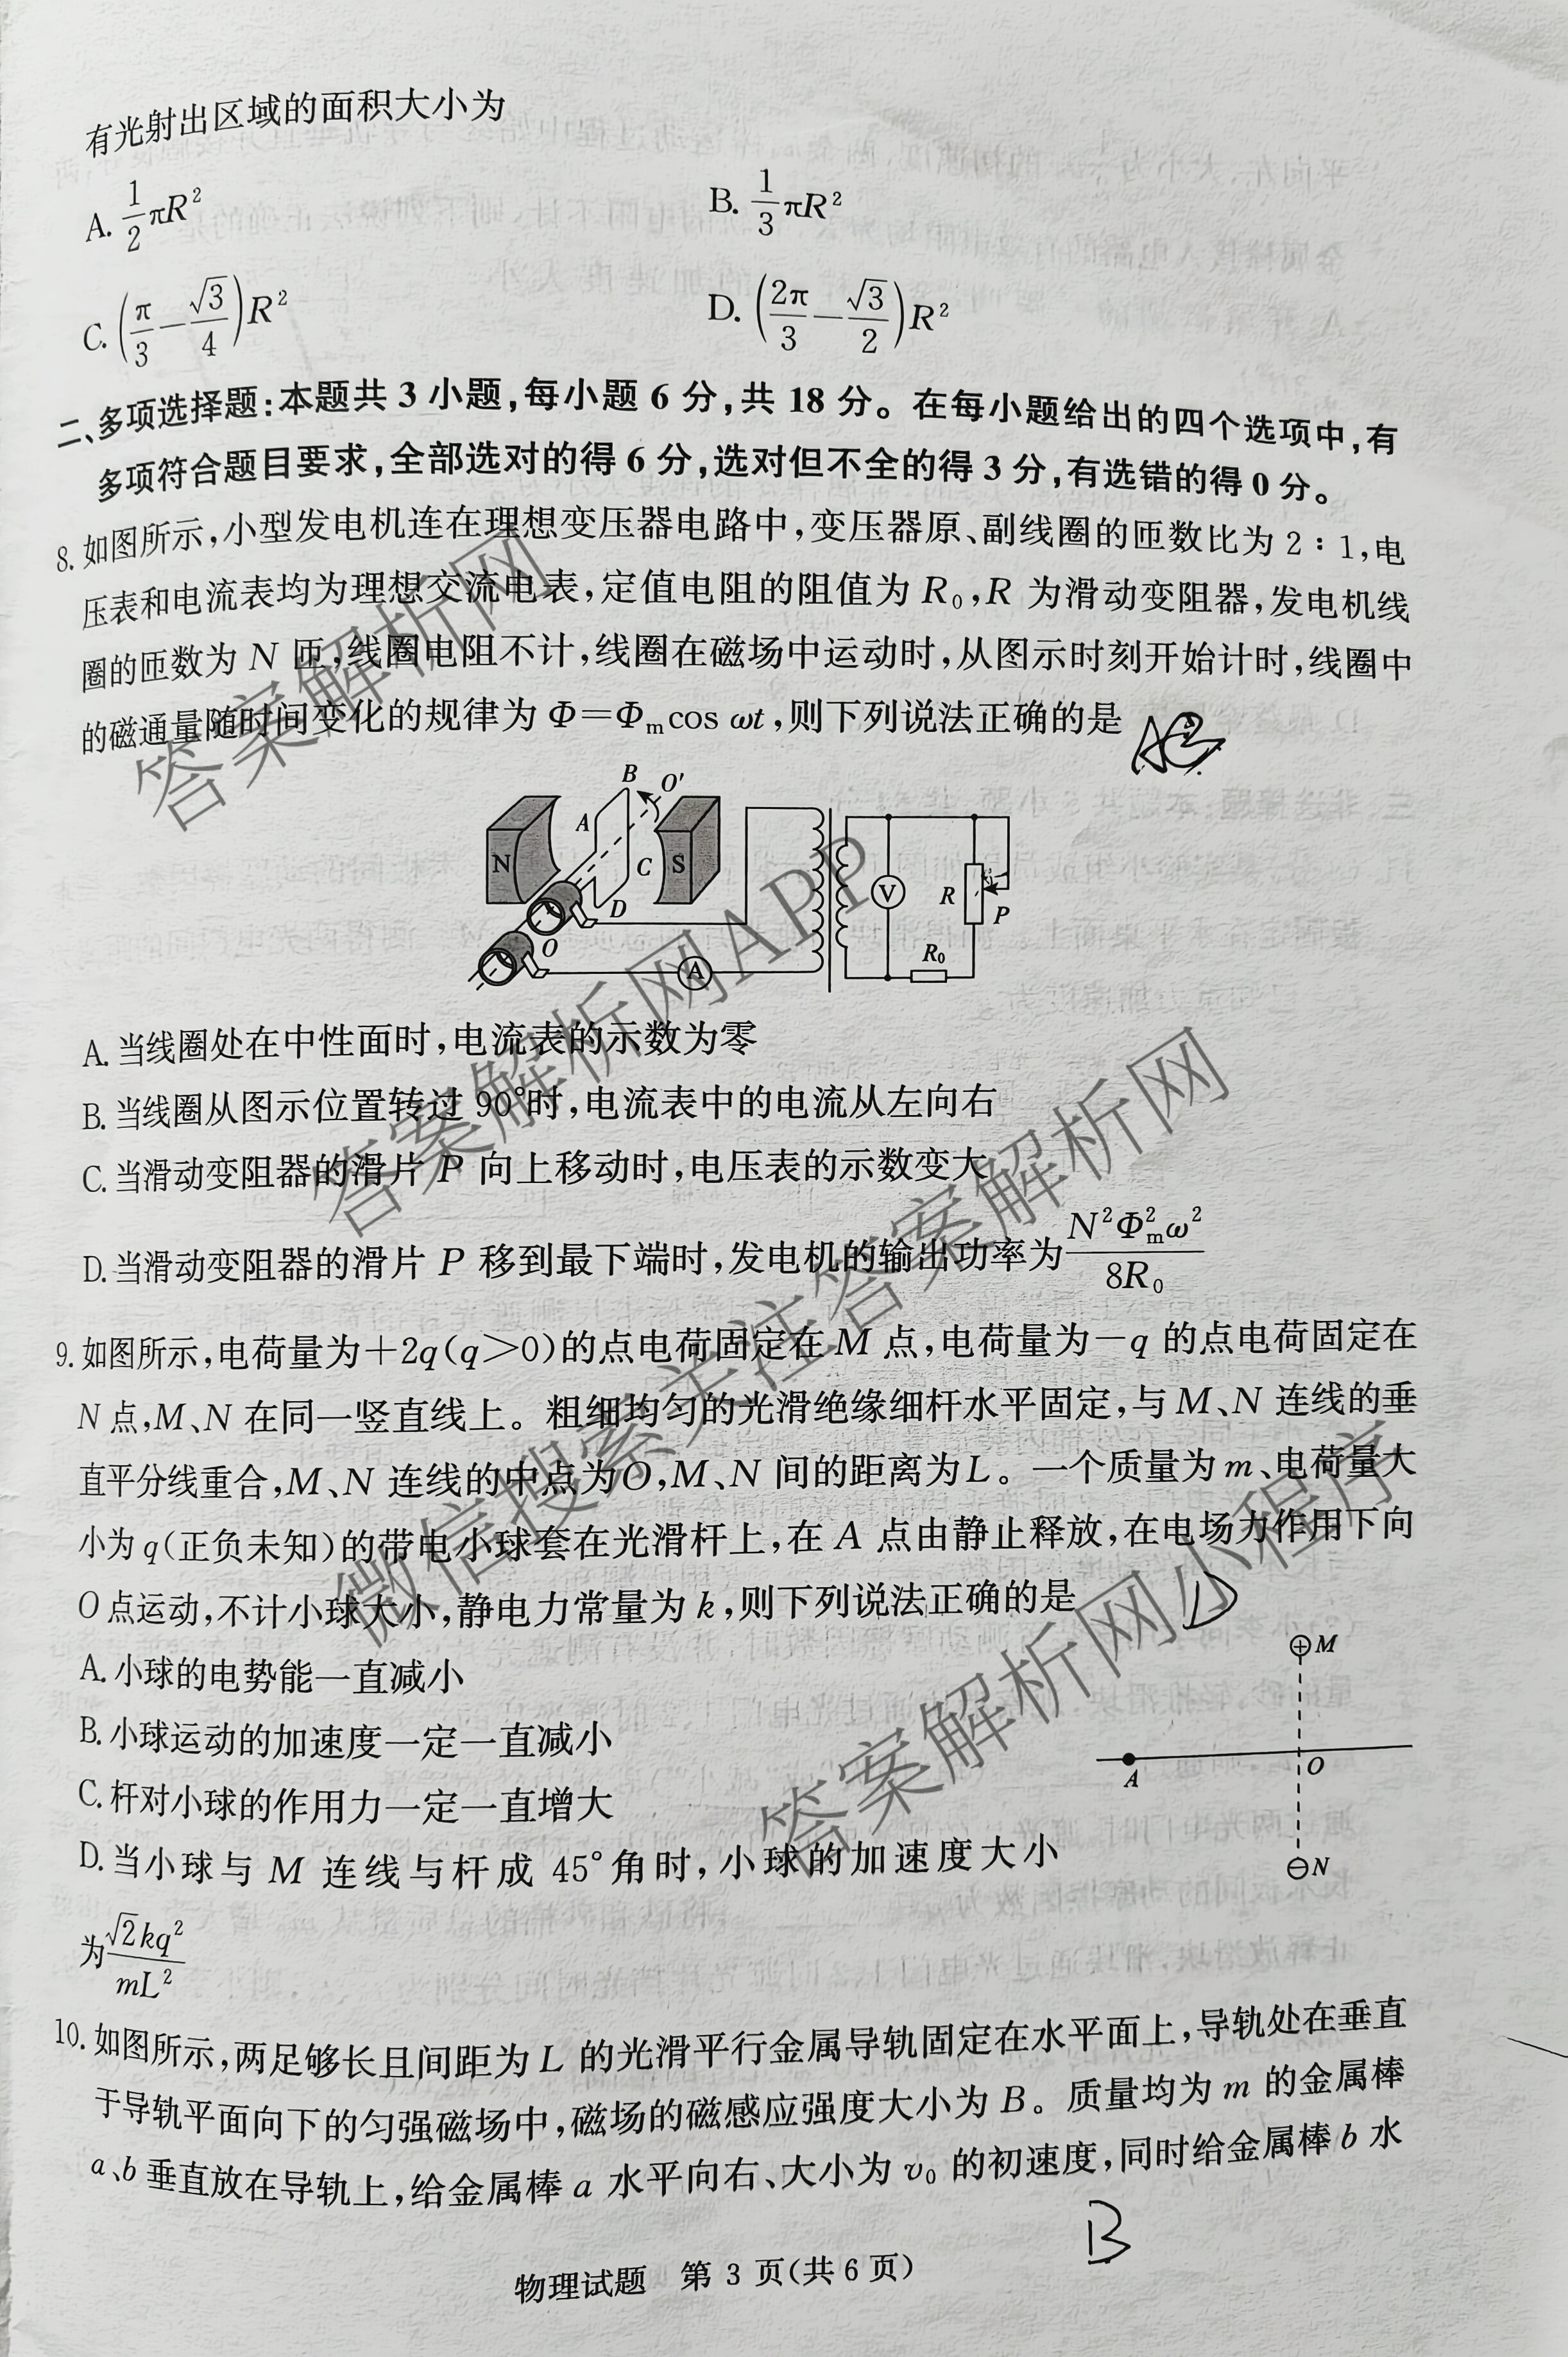 有光射出区域的面积大小为
A. \frac{1}{2}πR²
B. \frac{1}{3}πR²
C. (\frac{π}{3}-\frac{√3}{4})R²
D. (\frac{2π}{3}-\frac{√3}{2})R²
二、多项选择题:本题共 3 小题,每小题 6 分,共 18 分。在每小题给出的四个选项中,有
多项符合题目要求,全部选对的得 6 分,选对但不全的得 3 分,有选错的得 0 分。
8. 如图所示,小型发电机连在理想变压器电路中,变压器原、副线圈的匝数比为 2∶1,电
压表和电流表均为理想交流电表,定值电阻的阻值为 R₀,R 为滑动变阻器,发电机线
圈的匝数为 N 匝,线圈电阻不计,线圈在磁场中运动时,从图示时刻开始计时,线圈中
的磁通量随时间变化的规律为 Φ=Φₘcos ωt,则下列说法正确的是
B O'
A
N C S
D
O
A
V
R
P
R₀
A. 当线圈处在中性面时,电流表的示数为零
B. 当线圈从图示位置转过 90°时,电流表中的电流从左向右
C. 当滑动变阻器的滑片 P 向上移动时,电压表的示数变大
D. 当滑动变阻器的滑片 P 移到最下端时,发电机的输出功率为\frac{N²Φₘ²ω²}{8R₀}
9. 如图所示,电荷量为+2q(q>0)的点电荷固定在 M 点,电荷量为-q 的点电荷固定在
N 点,M、N 在同一竖直线上。粗细均匀的光滑绝缘细杆水平固定,与 M、N 连线的垂
直平分线重合,M、N 连线的中点为O,M、N 间的距离为L。一个质量为 m、电荷量大
小为 q(正负未知)的带电小球套在光滑杆上,在 A 点由静止释放,在电场力作用下向
O 点运动,不计小球大小,静电力常量为 k,则下列说法正确的是
D
A. 小球的电势能一直减小
B. 小球运动的加速度一定一直减小
C. 杆对小球的作用力一定一直增大
D. 当小球与 M 连线与杆成 45°角时,小球的加速度大小
为\frac{√2kq²}{mL²}
M
A
O
N
10. 如图所示,两足够长且间距为 L 的光滑平行金属导轨固定在水平面上,导轨处在垂直
于导轨平面向下的匀强磁场中,磁场的磁感应强度大小为 B。质量均为 m 的金属棒
a、b 垂直放在导轨上,给金属棒 a 水平向右、大小为 v₀ 的初速度,同时给金属棒 b 水
B
物理试题 第 3 页(共 6 页)
答案解析网
答案解析网APP
微信搜索关注答案解析网
答案解析网小程序